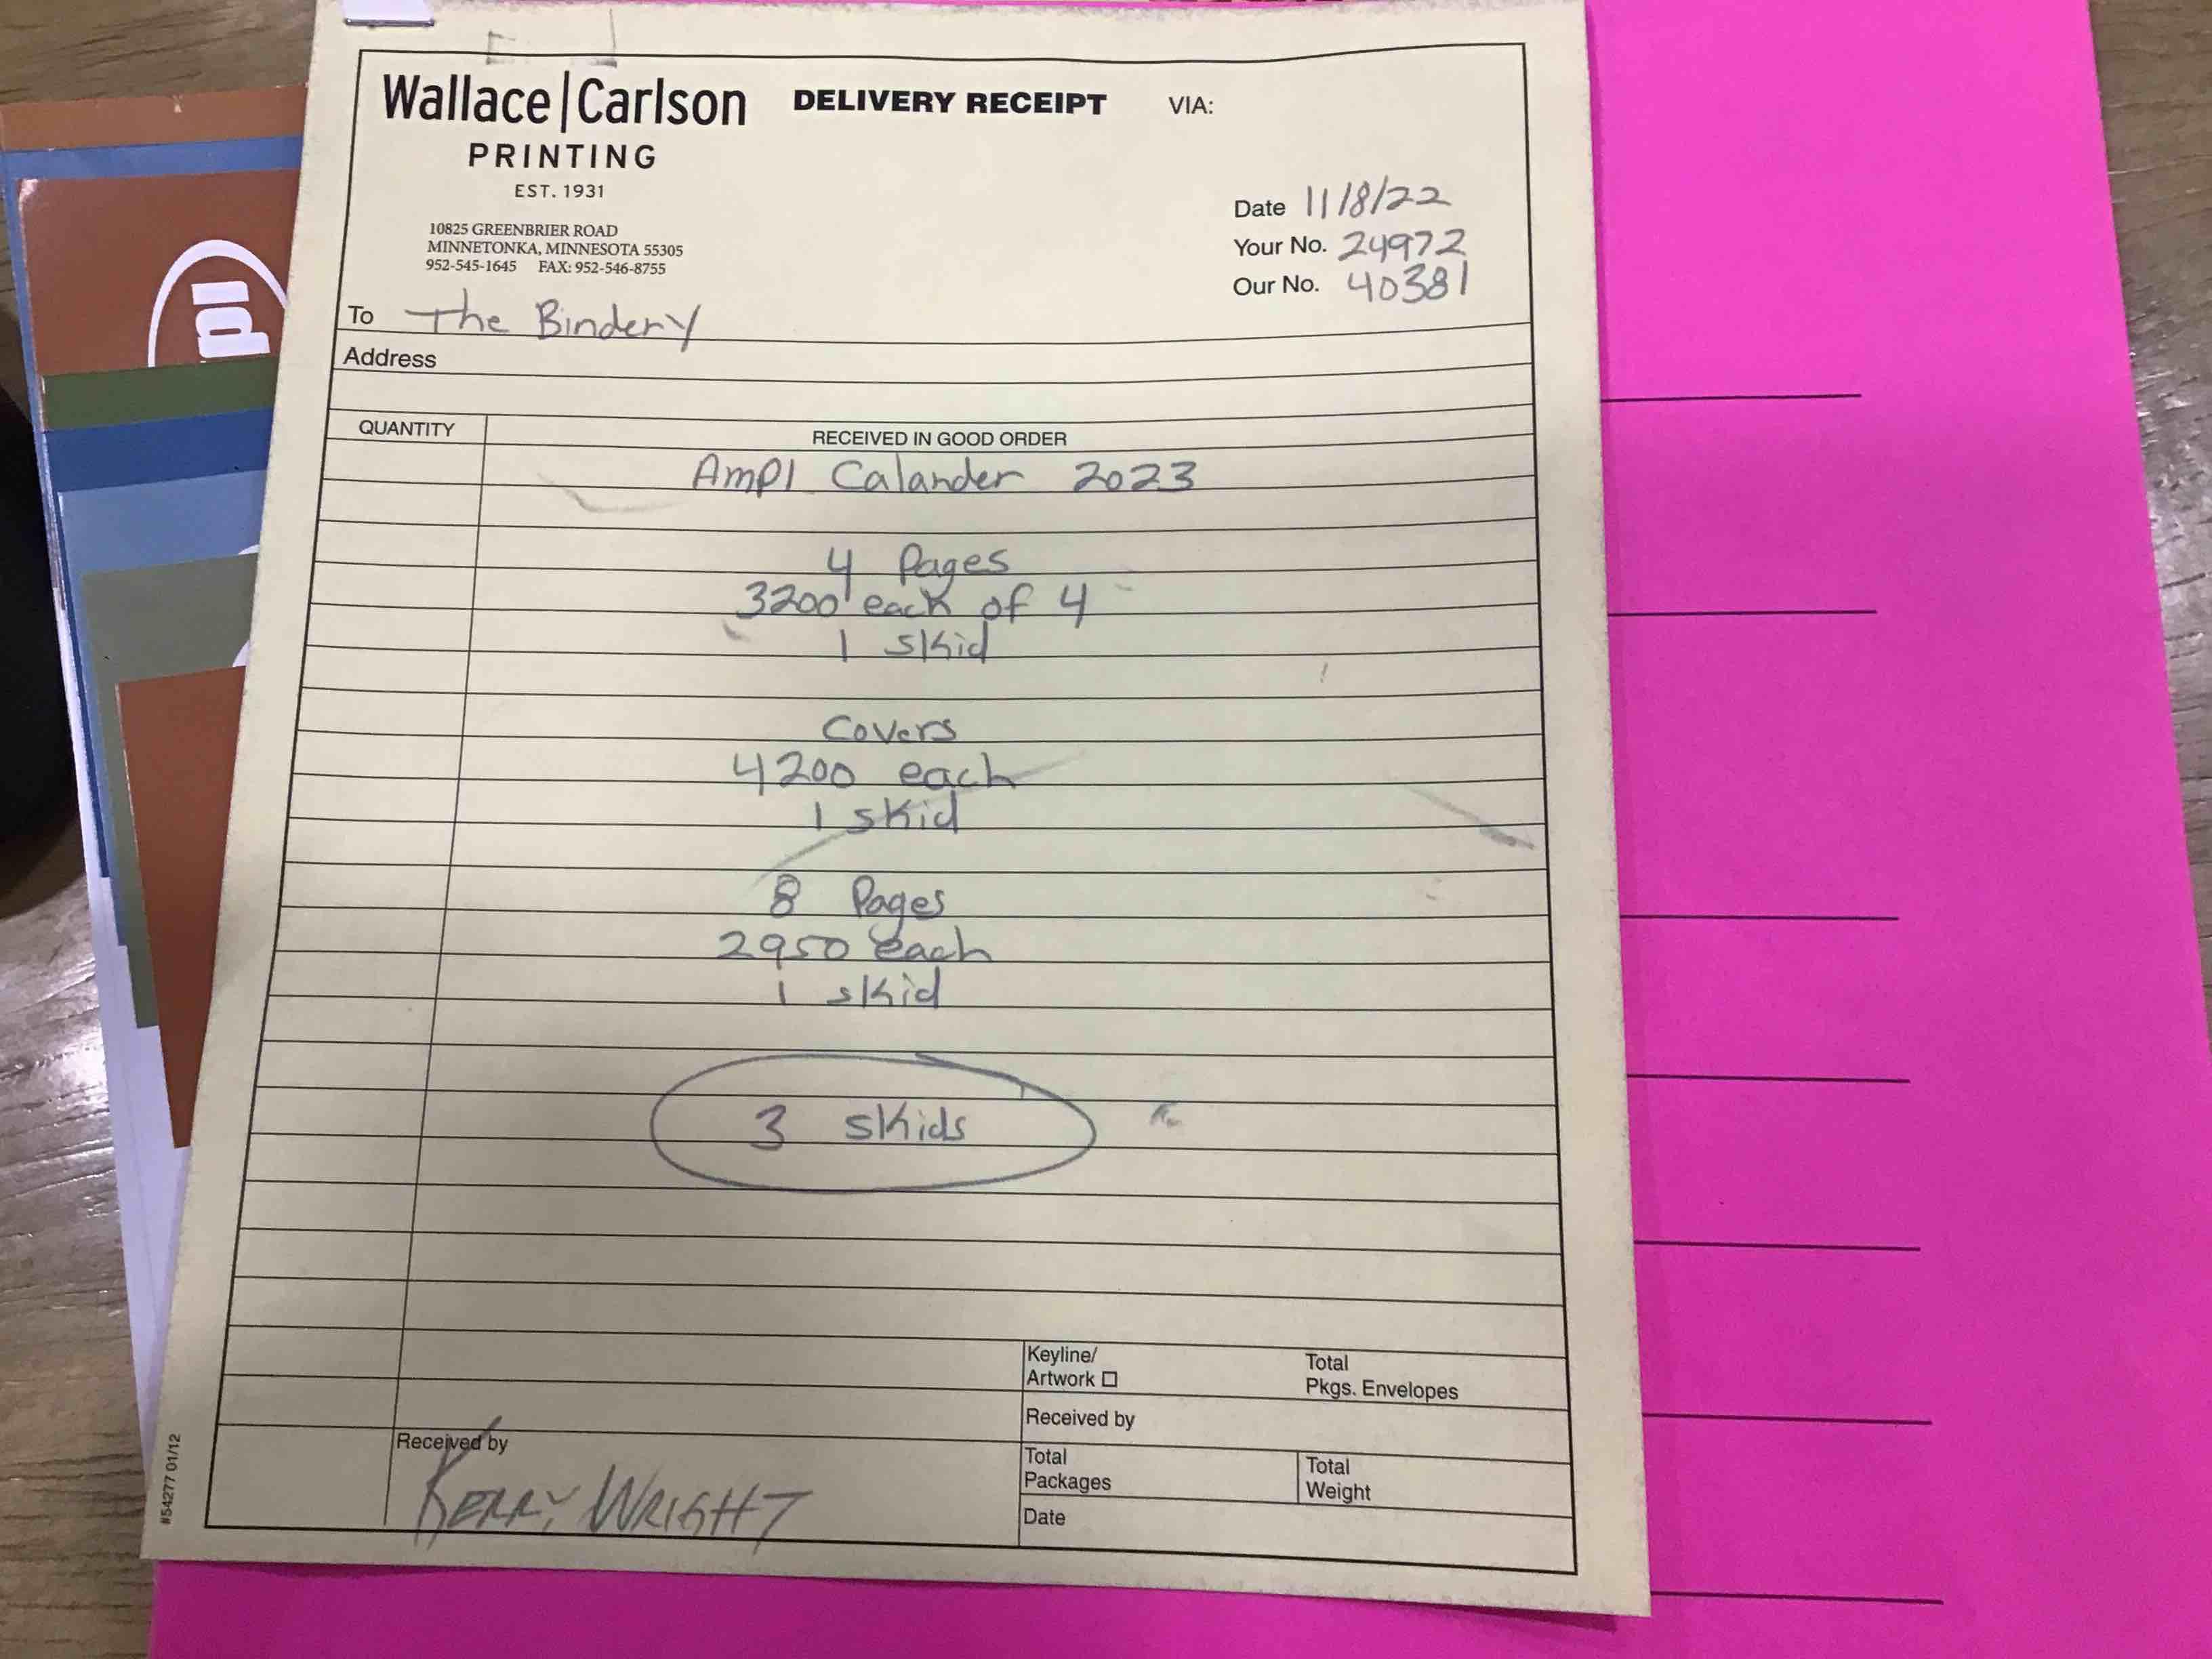 Wallace|Carlson
PRINTING
EST. 1931
10825 GREENBRIER ROAD
MINNETONKA, MINNESOTA 55305
952-545-1645 FAX: 952-546-8755
DELIVERY RECEIPT
VIA:
Date 11/8/22
Your No. 24972
Our No. 40381
To The Bindery
Address
QUANTITY
RECEIVED IN GOOD ORDER
AmPI Calander 2023
4 Pages
3200 each of 4
1 skid
Covers
4200 each
1 skid
8 Pages
2950 each
1 skid
3 skids
Keyline/
Artwork ☐
Total
Pkgs. Envelopes
Received by
Total
Packages
Total
Weight
Date
Received by
KERRY WRIGHT
#54277 01/12